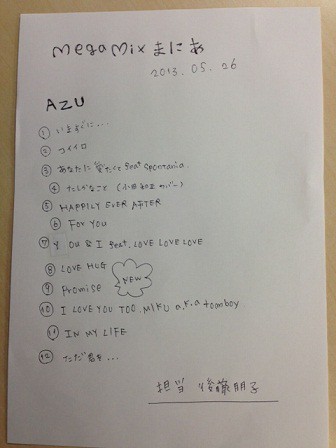 megaMixまにあ
2013.05.26
AZU
① いますぐに...
② コイイロ
③ あなたに愛たくて feat. Spontania.
④ たしかなこと (小田和正カバー)
⑤ HAPPILY EVER AFTER
⑥ FOR YOU
⑦ YOU & I feat. LOVE LOVE LOVE
⑧ LOVE HUG
NEW
⑨ Promise
⑩ I LOVE YOU TOO MIKU a.k.a tomboy
⑪ IN MY LIFE
⑫ ただ君を...
担当 後藤朋子